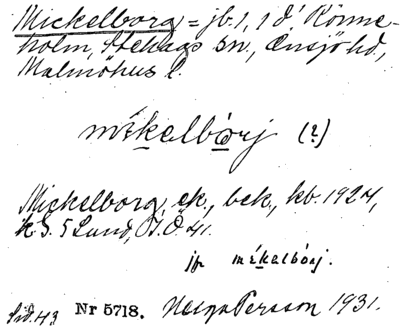 Mickelborg = jb. 1, 1 d! Rönne-
holm, Stehags sn., Onsjö hd.,
Malmöhus l.
mékelbórj (?)
Mickelborg, ek., bek., kb. 1924,
k S. 5 Lund, J.Ö. 41.
jfr mékelbórj.
Sid. 43 Nr 5718. Helga Persson 1931.